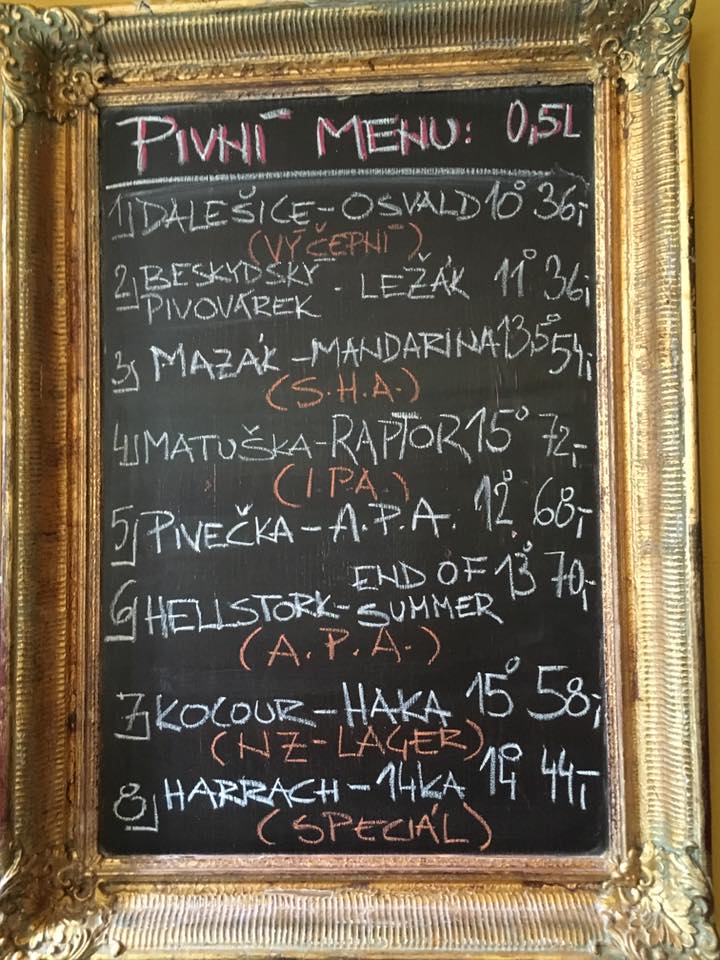 PIVNÍ MENU: 0,5L
1) DALEŠICE - OSVALD 10° 36,-
(VÝČEPNÍ)
2) BESKYDSKÝ PIVOVÁREK - LEŽÁK 11° 36,-
3) MAZÁK - MANDARINA 13,5° 54,-
(S.H.A.)
4) MATUŠKA - RAPTOR 15° 72,-
(IPA)
5) PIVEČKA - A.P.A. 12° 68,-
6) HELLSTORK - END OF SUMMER 13° 70,-
(A.P.A.)
7) KOCOUR - HAKA 15° 58,-
(NZ-LAGER)
8) HARRACH - 14KA 14° 44,-
(SPECIÁL)